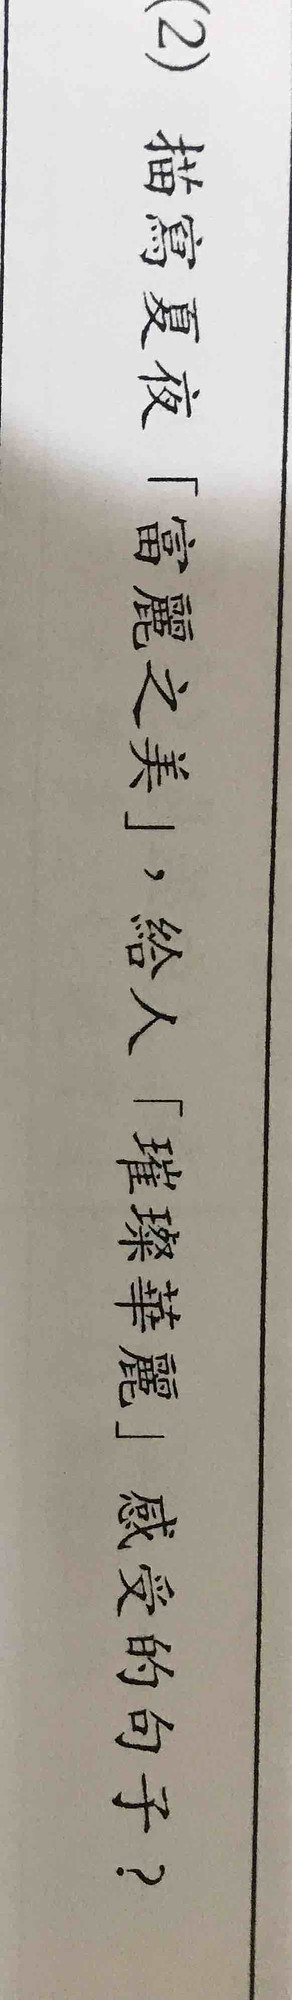 (2) 描寫夏夜「富麗之美」，給人「璀璨華麗」感受的句子？